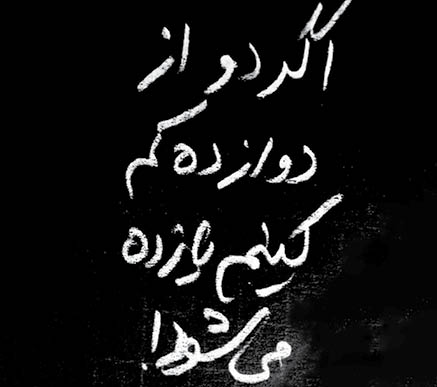 اگر دو از
دوازده کم
کنیم وازده
می شود!